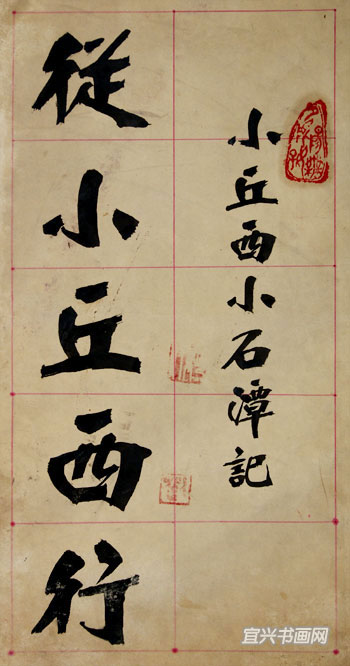 小丘西小石潭記
從小丘西行
宜兴书画网